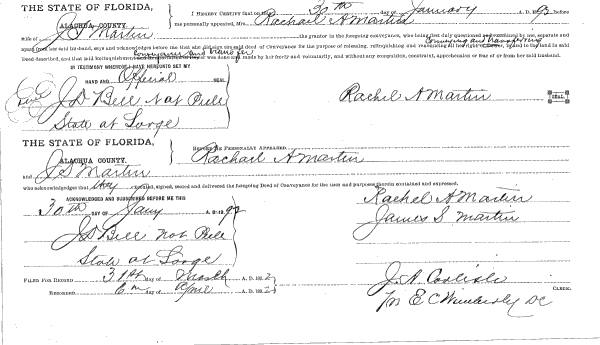 THE STATE OF FLORIDA,
ALACHUA COUNTY.
I HEREBY CERTIFY that on the 30th day of January A. D. 1892 before
me personally appeared, Mrs. Rachael A Martin
Wife of J S Martin the grantor in the foregoing conveyance, who being duly questioned and examined by me, separate and
Conveying and transferring
apart from her said husband, says and acknowledges before me that she did join in said deed of conveyance for the purpose of releasing, relinquishing and renouncing all her right of dower, in and to the land in said
Conveying and transfer
Deed described, and that said relinquishment and renunciation of dower was done and made by her freely and voluntarily, and without any compulsion, constraint, apprehension or fear of or from her said husband.
IN TESTIMONY WHEREOF I HAVE HEREUNTO SET MY
HAND AND Official SEAL
J D Bell Not Publc
State at Large
Rachel A Martin
SEAL
THE STATE OF FLORIDA,
ALACHUA COUNTY.
BEFORE ME PERSONALLY APPEARED,
Rachael A Martin
and J S Martin
who acknowledges that they signed, sealed and delivered the foregoing Deed of Conveyance for the uses and purposes therein contained and expressed.
ACKNOWLEDGED AND SUBSCRIBED BEFORE ME THIS
30th DAY OF Jany A. D. 1892
J D Bell Not Publc
State at Large
Rachel A Martin
James S Martin
FILED FOR RECORD 31st day of March A. D. 1892
RECORDED 6th day of April A. D. 1892
J. A. Carlisle CLERK.
Per E C Wimberly DC